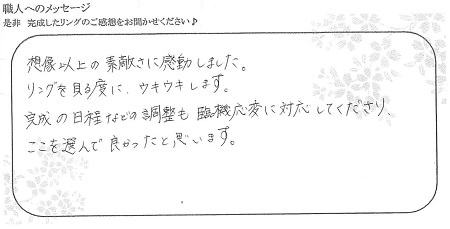 職人へのメッセージ
是非　完成したリングのご感想をお聞かせください♪
想像以上の素敵さに感動しました。
リングを見る度に、ウキウキします。
完成の日程などの調整も臨機応変に対応してくださり、
ここを選んで良かったと思います。